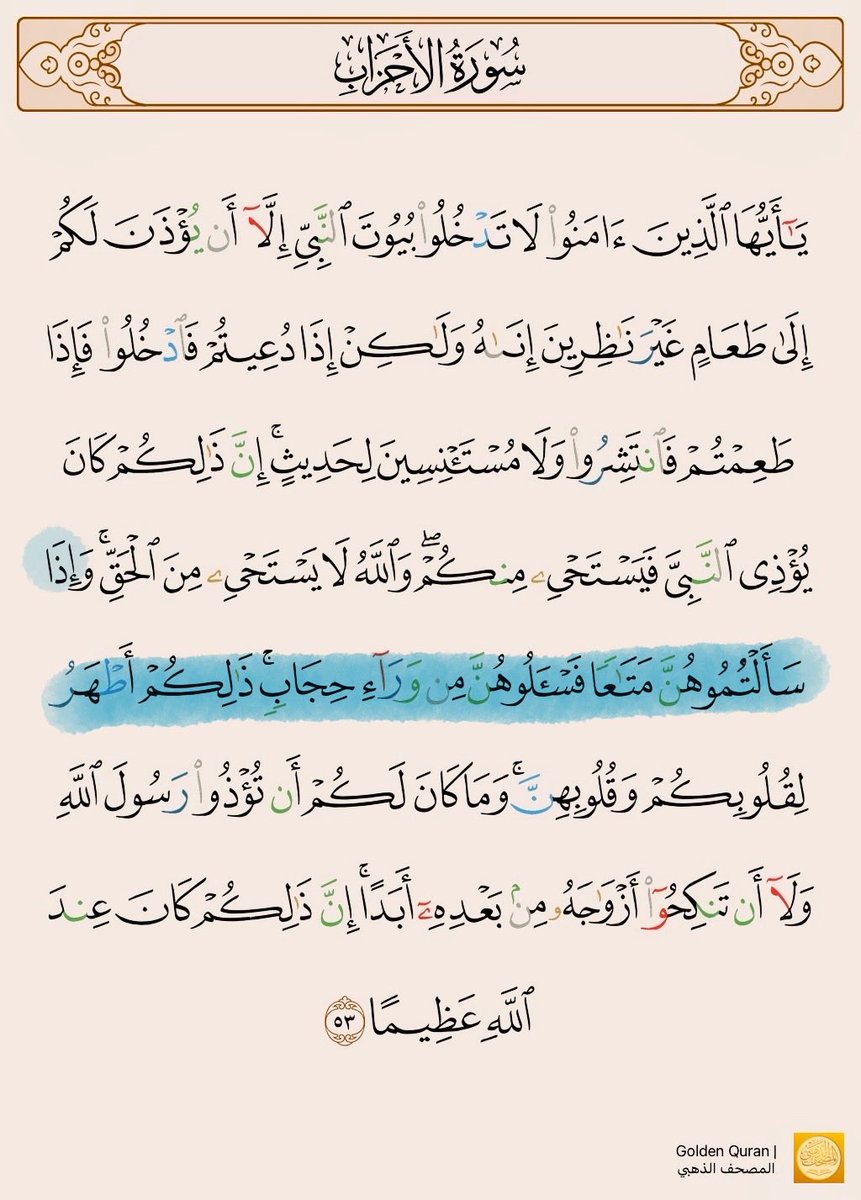 سُورَةُ الأَحْزَابِ
يَـٰٓأَيُّهَا ٱلَّذِينَ ءَامَنُوا۟ لَا تَدْخُلُوا۟ بُيُوتَ ٱلنَّبِىِّ إِلَّآ أَن يُؤْذَنَ لَكُمْ
إِلَىٰ طَعَامٍ غَيْرَ نَـٰظِرِينَ إِنَىٰهُ وَلَـٰكِنْ إِذَا دُعِيتُمْ فَٱدْخُلُوا۟ فَإِذَا
طَعِمْتُمْ فَٱنتَشِرُوا۟ وَلَا مُسْتَـْٔنِسِينَ لِحَدِيثٍ ۚ إِنَّ ذَٰلِكُمْ كَانَ
يُؤْذِى ٱلنَّبِىَّ فَيَسْتَحْىِۦ مِنكُمْ ۖ وَٱللَّهُ لَا يَسْتَحْىِۦ مِنَ ٱلْحَقِّ ۚ وَإِذَا
سَأَلْتُمُوهُنَّ مَتَـٰعًا فَسْـَٔلُوهُنَّ مِن وَرَآءِ حِجَابٍ ۚ ذَٰلِكُمْ أَطْهَرُ
لِقُلُوبِكُمْ وَقُلُوبِهِنَّ ۚ وَمَا كَانَ لَكُمْ أَن تُؤْذُوا۟ رَسُولَ ٱللَّهِ
وَلَآ أَن تَنكِحُوٓا۟ أَزْوَٰجَهُۥ مِنۢ بَعْدِهِۦٓ أَبَدًا ۚ إِنَّ ذَٰلِكُمْ كَانَ عِندَ
ٱللَّهِ عَظِيمًا ٥٣
Golden Quran |
المصحف الذهبي